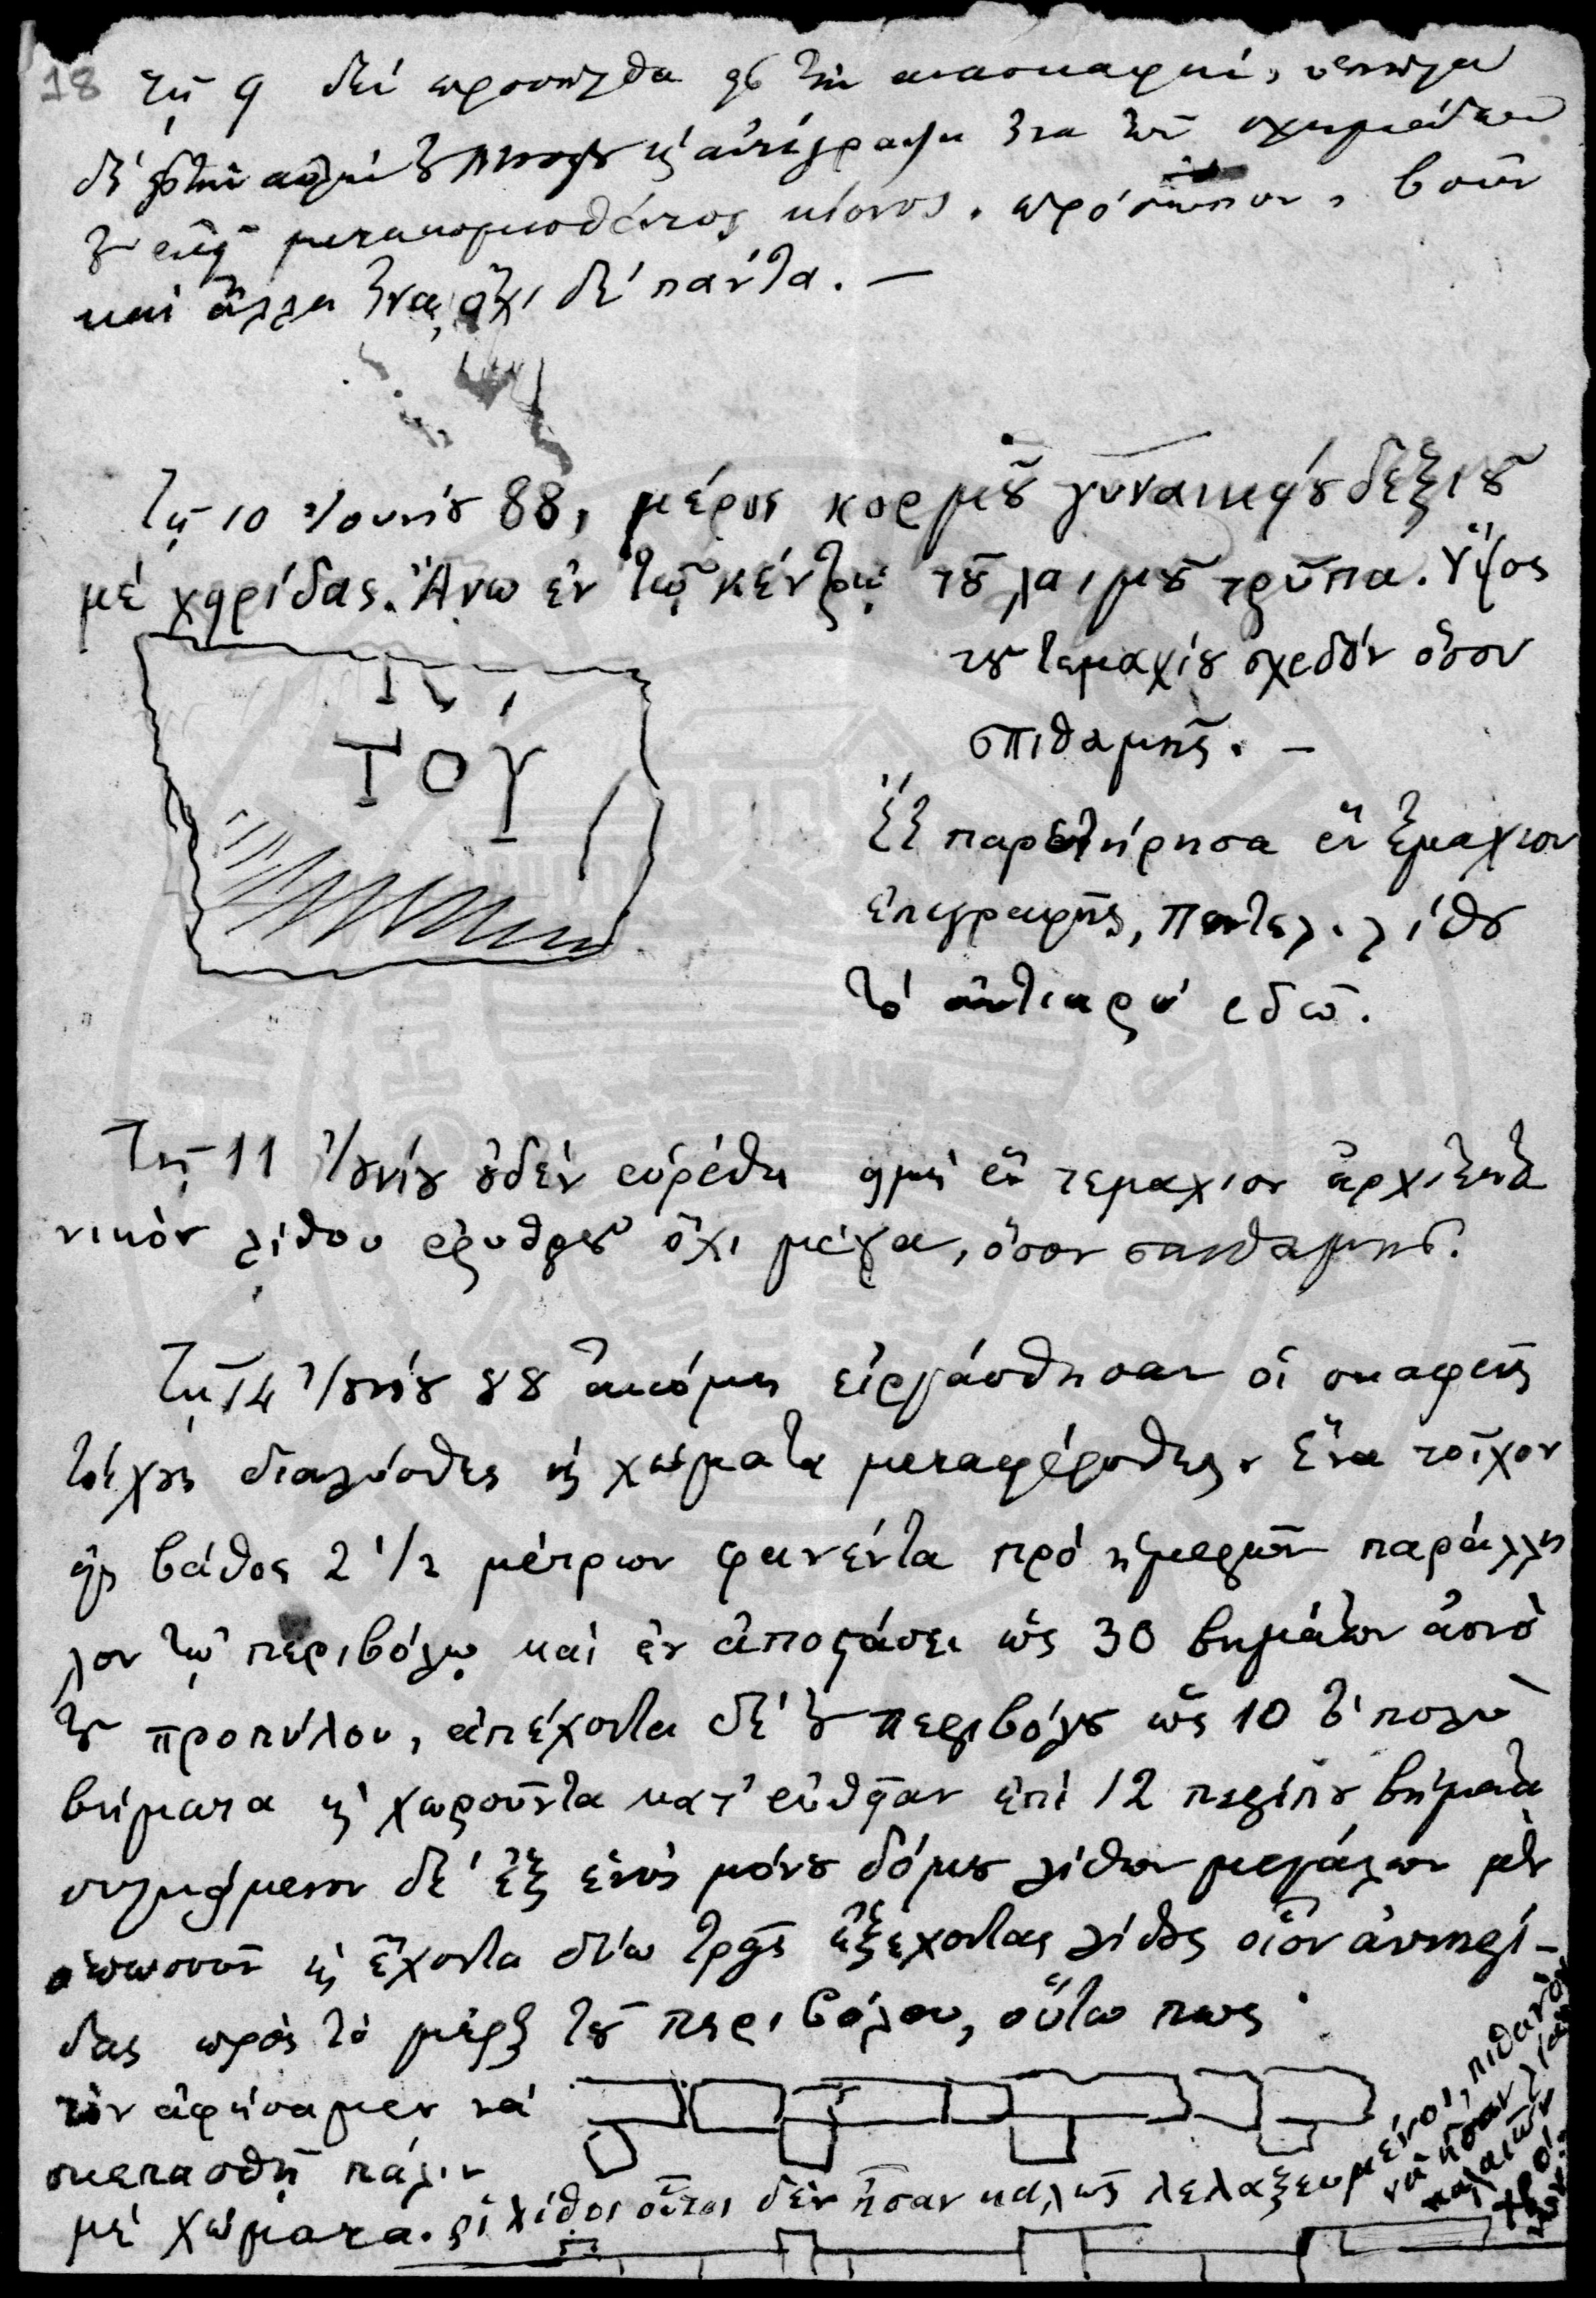 18
τῇ 9 δὲν προσῆλθα εἰς τὴν ἀνασκαφήν,
δὲ εἰς τὴν αὐλὴν τοῦ καὶ ἀντέγραψα ἕνα τῶν
τοῦ ἐκεῖ μετακομισθέντος κίονος. πρόσωπον, βοῦν
καὶ ἄλλα τινα, ὄχι δὲ πάντα. —
Τῇ 10 Ἰουνίου 88, μέρος κορμοῦ γυναικείου δεξιοῦ
μὲ χειρίδας. Ἄνω ἐν τῷ κέντρῳ τοῦ λαιμοῦ τρῦπα. Ὕψος
τοῦ τεμαχίου σχεδὸν ὅσον
σπιθαμῆς. —
ΤΟΥ
παρετήρησα ἓν τεμάχιον
ἐπιγραφῆς, Πεντελ. λίθου
τὸ ἀντικρὺ ἐδῶ.
Τῇ 11 Ἰουνίου οὐδὲν εὑρέθη εἰμὴ ἓν τεμάχιον ἀρχιτεκτο
νικὸν λίθου ἐρυθροῦ ὄχι μέγα, ὅσον σπιθαμῆς.
Τῇ 14 Ἰουνίου 88 ἀκόμη εἰργάσθησαν οἱ σκαφεῖς
τοίχους διαλύοντες καὶ χώματα μεταφέροντες. Ἕνα τοῖχον
εἰς βάθος 2 1/2 μέτρων φανέντα πρὸ ἡμερῶν παράλλη
λον τῷ περιβόλῳ καὶ ἐν ἀποστάσει ὡς 30 βημάτων ἀπὸ
τοῦ προπύλου, ἀπέχοντα δὲ τοῦ περιβόλου ὡς 10 τὸ πολὺ
βήματα καὶ χωροῦντα κατ' εὐθεῖαν ἐπὶ 12 περίπου βήματα
συγκείμενον δὲ ἐξ ἑνὸς μόνου δόμου λίθων μεγάλων μὲν
καὶ ἔχοντα ἔξω τρεῖς ἐξέχοντας λίθους οἷον ἀντηρί-
δας πρὸς τὸ μέρος τοῦ περιβόλου, οὕτω πως
τὸν ἀφήσαμεν νὰ
σκεπασθῇ πάλιν
μὲ χώματα. οἱ λίθοι οὗτοι δὲν ἦσαν καλῶς λελαξευμένοι, πιθανὸν
νὰ ἦσαν λίαν
παλαιῶν